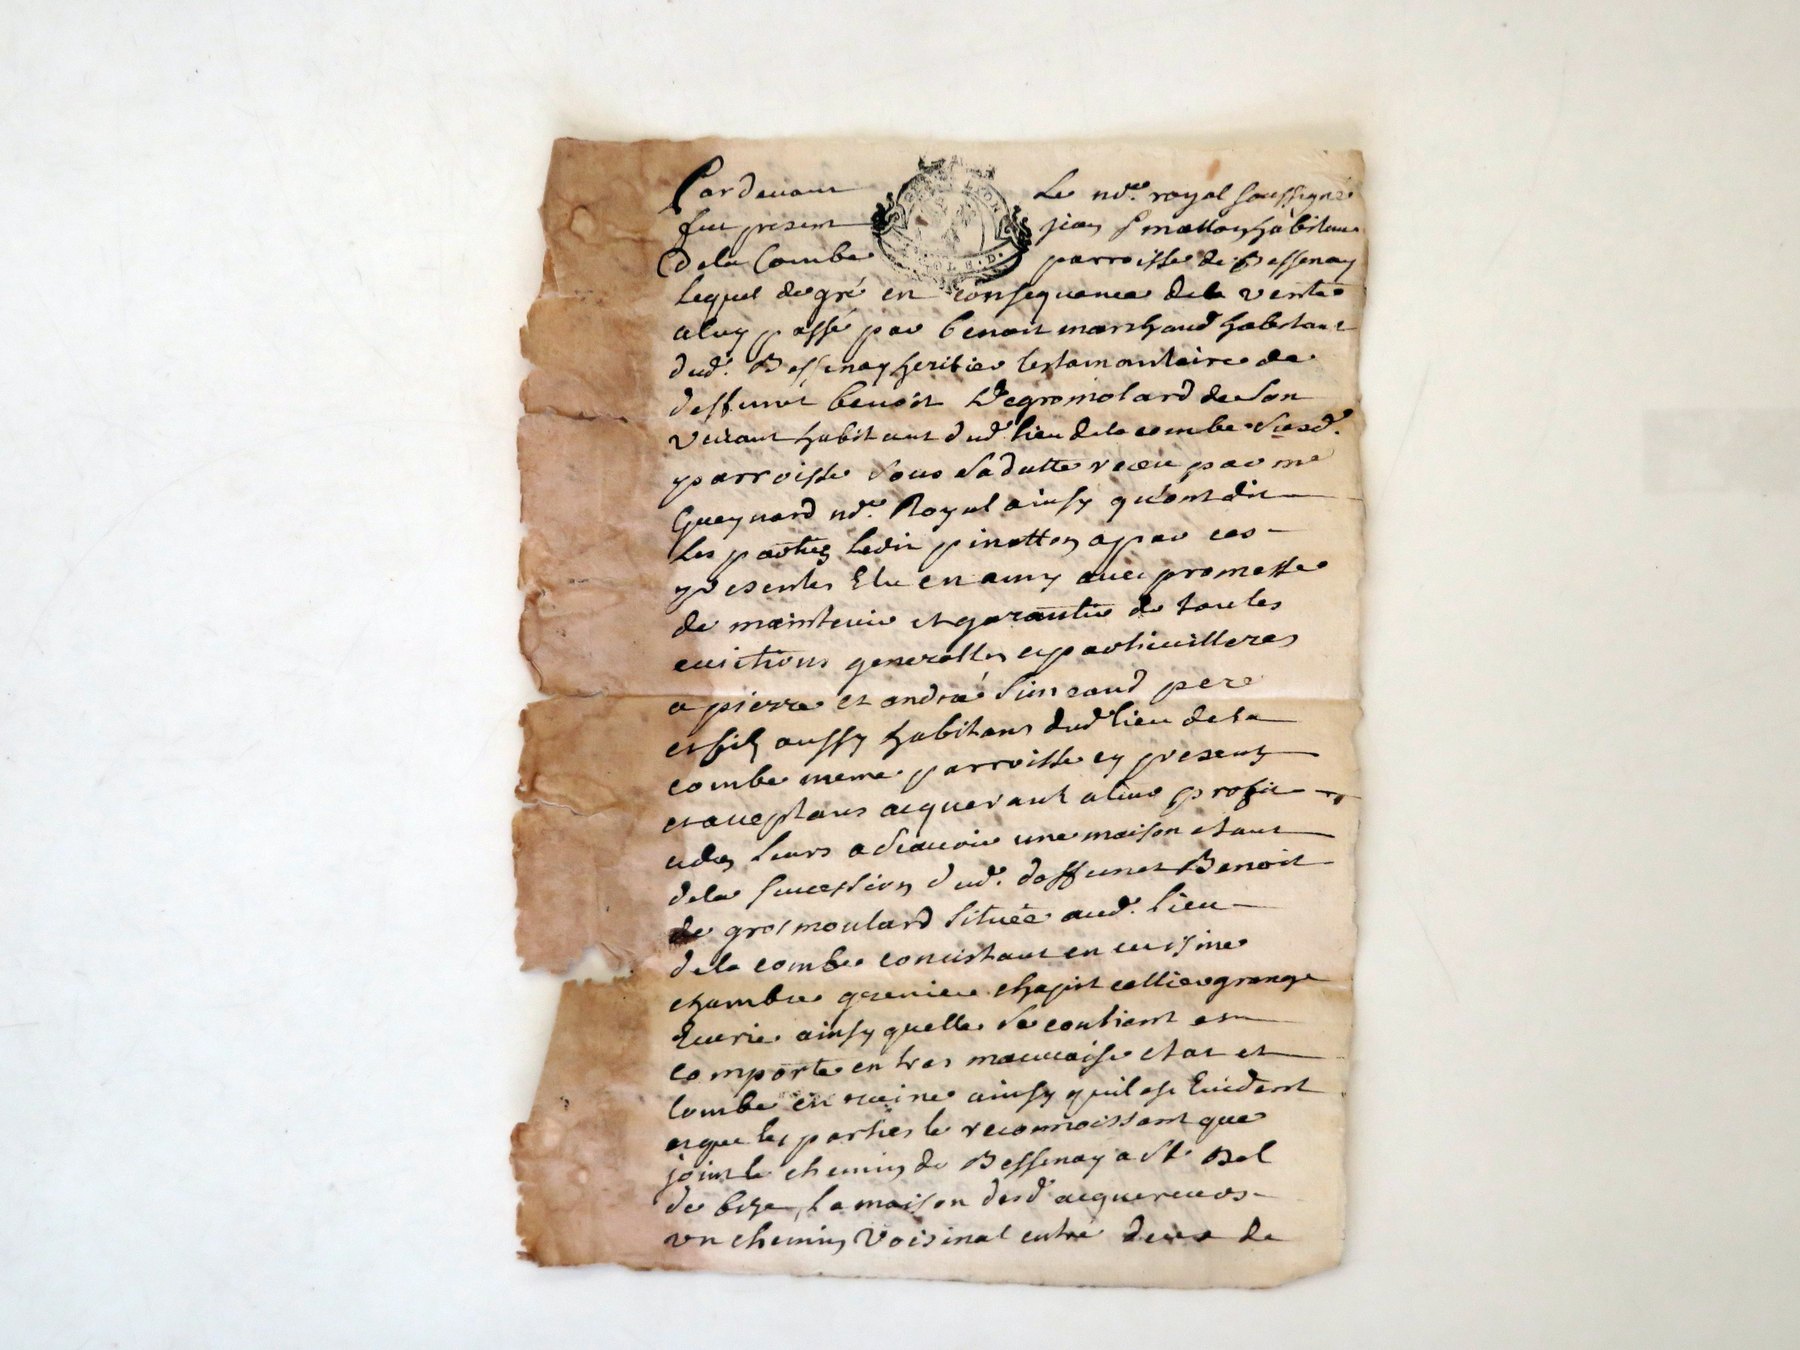 Pardevant Le nore. royal soussigné
fut present jean habitant
de la Combe parroisse de Bessenay
Lequel de gré en consequence de la vente
a luy passé par benoit marchand habitant
dud. Bessenay heritier testamentaire de
deffunct benoit Degromolard de son
vivant habitant dud. lieu de la combe susd.
parroisse sous sa datte receu par me
Gueynard nore. Royal ainsy qu'ont dit
Les parties ledit pinatton a par ces
presentes Elu en amy avec promesse
de maintenir et garantir de toutes
evictions generalles et particuilleres
a pierre et andré Simeand pere
et filz aussy habitans dud lieu de la
combe meme parroisse cy presents
et acceptans acquerant a leur profit
et des leurs a scavoir une maison etant
dela succession dud. deffunct Benoit
de grosmoulard située aud. lieu
de la combe concistant en cuisine
chambre grenier chapit cellier grange
Ecurie ainsy quelle se contient et
comporte en tres mauvaise etat et
tombe en ruine ainsy quil est Evident
et que les parties le reconnoissent que
joint le chemin de Bessenay a St. Bel
de bize, la maison desd acquereurs
un chemin Voisinal entre deux de